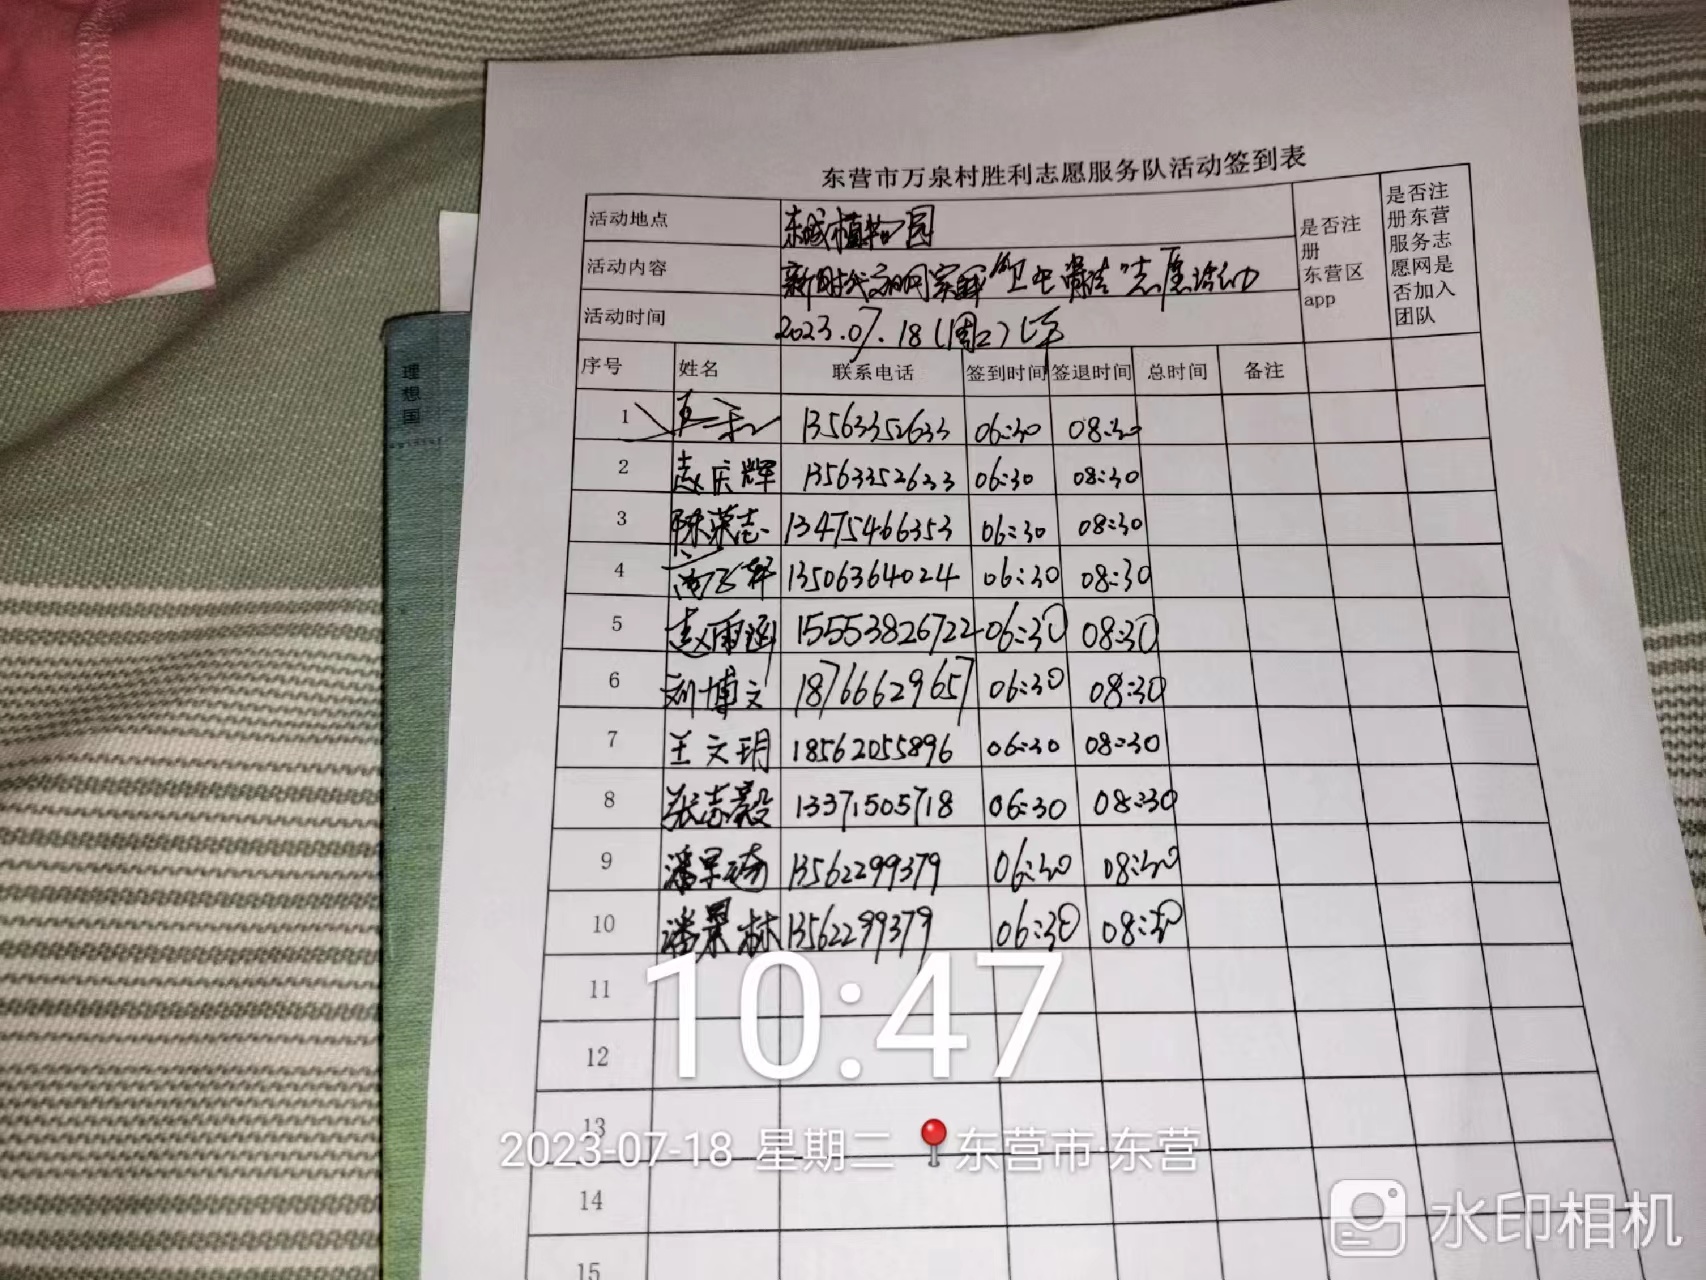 理想国
东营市万泉村胜利志愿服务队活动签到表
活动地点 东城植物园 是否注册东营区app 是否注册东营服务志愿网是否加入团队
活动内容 新时代文明实践“卫生清洁”志愿活动
活动时间 2023.07.18(周二)上午
序号 姓名 联系电话 签到时间 签退时间 总时间 备注
1 13563352633 06:30 08:30
2 赵庆辉 13563352633 06:30 08:30
3 陈荣志 13475466353 06:30 08:30
4 13506364024 06:30 08:30
5 赵雨涵 15553826722 06:30 08:30
6 刘博文 18766629657 06:30 08:30
7 王文玥 18562055896 06:30 08:30
8 张志毅 13371505718 06:30 08:30
9 13562299379 06:30 08:30
10 潘景林 13562299379 06:30 08:30
11
10:47
12
13
2023-07-18 星期二 东营市·东营
14
水印相机
15